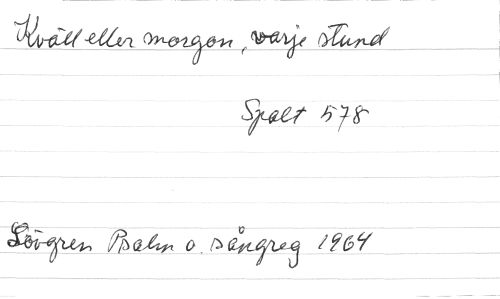 Kväll eller morgon, varje stund
Spalt 578
Lövgren Psalm o. sångreg 1964